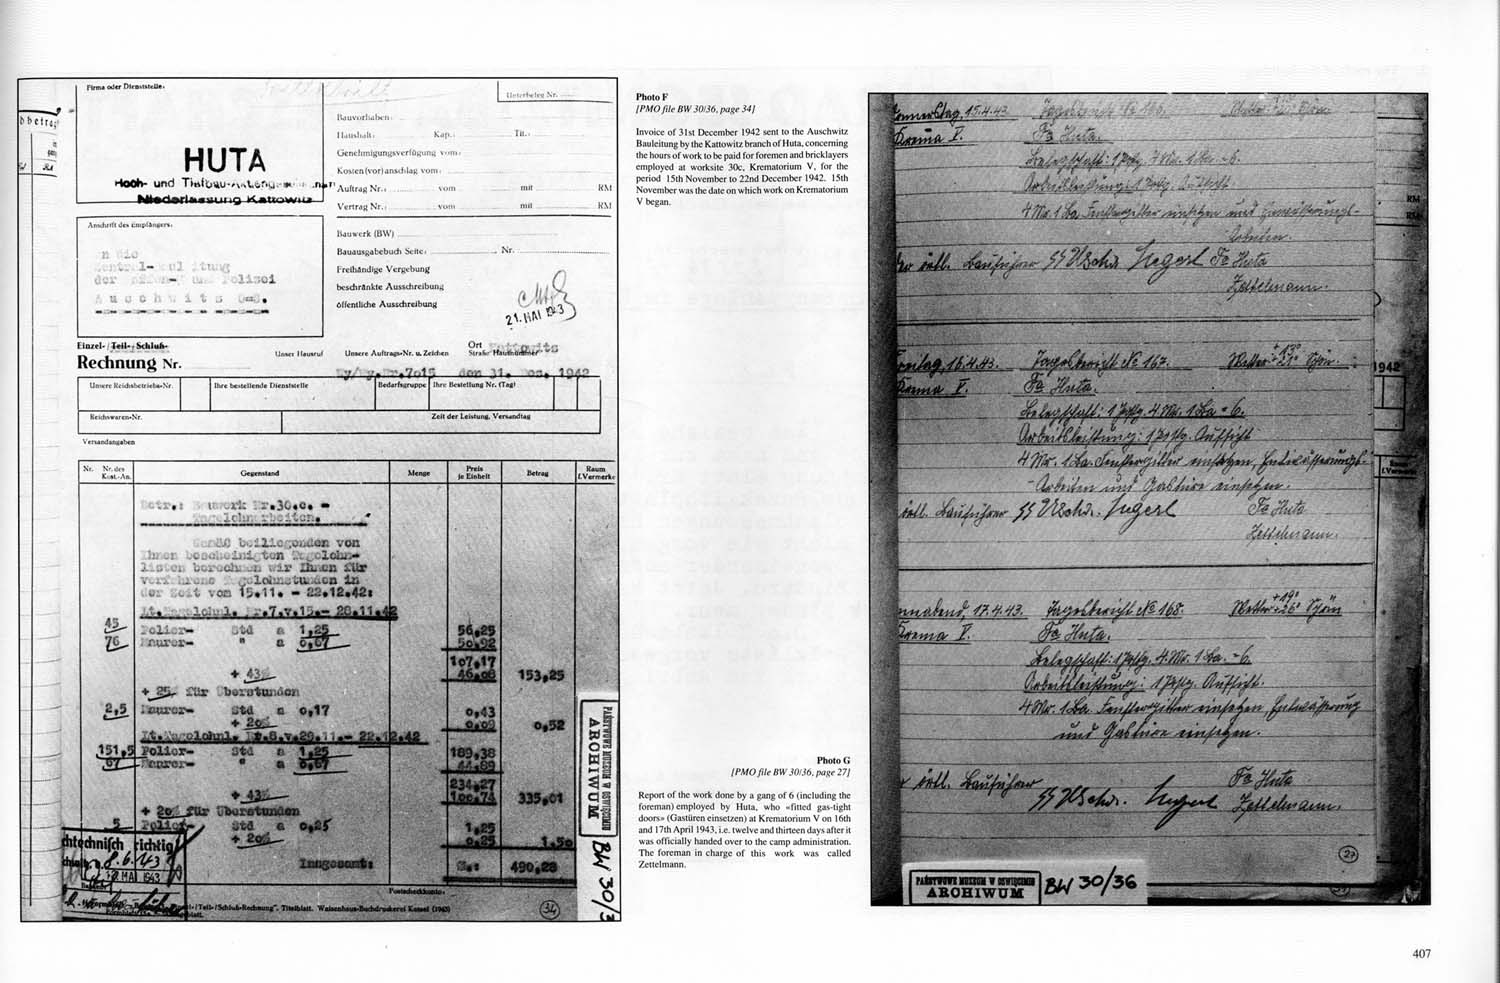 Firma oder Dienststelle:
HUTA
Hoch- und Tiefbau-Aktiengesellschaft
Niederlassung Kattowitz
Anschrift des Empfängers:
n die
Zentral-Bauleitung
der Waffen-# und Polizei
Auschwitz O=S.
Unterbeleg Nr.
Bauvorhaben:
Haushalt: Kap.: Tit.:
Genehmigungsverfügung vom:
Kosten(vor)anschlag vom:
Auftrag Nr.: vom mit RM
Vertrag Nr.: vom mit RM
Bauwerk (BW)
Bauausgabebuch Seite: Nr.
Freihändige Vergebung
beschränkte Ausschreibung
öffentliche Ausschreibung
21. MAI 1943
Einzel-/Teil-/Schluß-
Rechnung Nr.
Unser Hausruf
Unsere Auftrags-Nr. u. Zeichen
Ort Kattowitz
Straße Hausnummer
Wy/Wy.Nr.7015 den 31. Dez. 1942
Unsere Reichsbetriebs-Nr.
Ihre bestellende Dienststelle
Bedarfsgruppe
Ihre Bestellung Nr. (Tag)
Reichswaren-Nr.
Zeit der Leistung, Versandtag
Versandangaben
Nr. Nr. des Kost.-An. Gegenstand Menge Preis je Einheit Betrag Raum f.Vermerke
Betr.: Bauwerk Nr.30.c. =
Tagelohnarbeiten.
Gemäß beiliegenden von
Ihnen bescheinigten Tagelohn-
listen berechnen wir Ihnen für
verfahrene Tagelohnstunden in
der Zeit vom 15.11. - 22.12.42:
Lt.Tagelohnl. Nr.7.v.15.- 28.11.42
45 Polier- Std a 1,25 56,25
76 Maurer- " a 0,67 50,92
107,17
+ 43% 46,08 153,25
+ 25% für Überstunden
2,5 Maurer- Std a 0,17 0,43
+ 20% 0,09 0,52
Lt.Tagelohnl. Nr.8.v.29.11.- 22.12.42
151,5 Polier- Std a 1,25 189,38
67 Maurer- " a 0,67 44,89
234,27
+ 43% 100,74 335,01
+ 20% für Überstunden
5 Polier- Std a 0,25 1,25
+ 20% 0,25 1,50
Insgesamt: 490,28
Postscheckkonto:
8.6.43
MAI 1943
-/Teil-/Schluß-Rechnung". Titelblatt. Waisenhaus-Buchdruckerei Kassel (1943)
34
PAŃSTWOWE MUZEUM W OŚWIĘCIMIU
ARCHIWUM
BW 30/3
Photo F
[PMO file BW 30/36, page 34]
Invoice of 31st December 1942 sent to the Auschwitz
Bauleitung by the Kattowitz branch of Huta, concerning
the hours of work to be paid for foremen and bricklayers
employed at worksite 30c, Krematorium V, for the
period 15th November to 22nd December 1942. 15th
November was the date on which work on Krematorium
V began.
Photo G
[PMO file BW 30/36, page 27]
Report of the work done by a gang of 6 (including the
foreman) employed by Huta, who «fitted gas-tight
doors» (Gastüren einsetzen) at Krematorium V on 16th
and 17th April 1943, i.e. twelve and thirteen days after it
was officially handed over to the camp administration.
The foreman in charge of this work was called
Zettelmann.
Donnerstag, 15.4.43. Tagesbericht No 166. Wetter Schön
Krema V. Fa Huta.
Belegschaft: 1 Polg. 4 Mr. 1 Ba. - 6.
Arbeitsleistung: 1 Polg. Aufsicht.
4 Mr. 1 Ba. Fenstergitter einsetzen und Entwässerungs-
Arbeiten.
örtl. Bauführer SS Uscha. Fa Huta
Zettelmann.
Freitag, 16.4.43. Tagesbericht No 167. Wetter Schön
Krema V. Fa Huta.
Belegschaft: 1 Polg. 4 Mr. 1 Ba = 6.
Arbeitsleistung: 1 Polg. Aufsicht
4 Mr. 1 Ba. Fenstergitter einsetzen, Entwässerungs-
- Arbeiten und Gastüre einsetzen.
örtl. Bauführer SS Uscha. Fa Huta
Zettelmann.
nnabend, 17.4.43. Tagesbericht No 168. Wetter +19° +26° Schön
Krema V. Fa Huta.
Belegschaft: 1 Polg. 4 Mr. 1 Ba. - 6.
Arbeitsleistung: 1 Polg. Aufsicht.
4 Mr. 1 Ba Fenstergitter einsetzen, Entwässerung
und Gastüre einsetzen.
r örtl. Bauführer Fa Huta
SS Uscha. Zettelmann.
27
PAŃSTWOWE MUZEUM W OŚWIĘCIMIU
ARCHIWUM
BW 30/36
RM
RM
1942
Raum
f.Vermerke
407